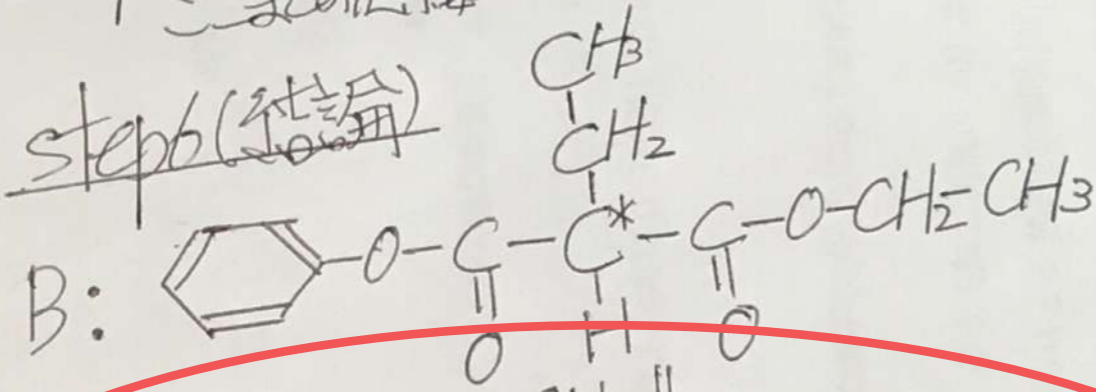 step6(結論)
CH3
CH2
B: O-C-C*-C-O-CH2-CH3
O H O